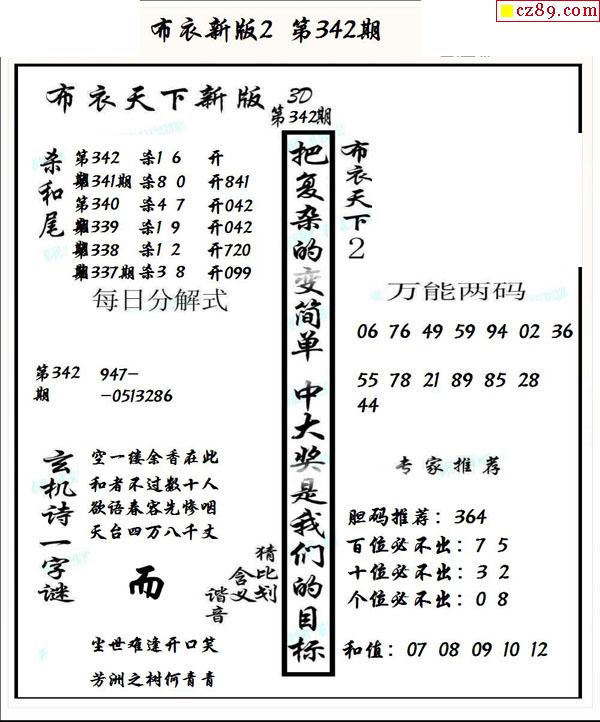 cz89.com
布衣新版2 第342期
布衣天下新版 3D
第342期
杀和尾
第342 杀16 开
第341期 杀80 开841
第340 杀47 开042
第339 杀19 开042
第338 杀12 开720
第337期 杀38 开099
每日分解式
第342期 947-
-0513286
玄机诗一字谜
空一缕余香在此
和者不过数十人
欲语春容先惨咽
天台四万八千丈
而
猜比划
含义
谐音
尘世难逢开口笑
芳洲之树何青青
把复杂的变简单 中大奖是我们的目标
布衣天下2
万能两码
06 76 49 59 94 02 36
55 78 21 89 85 28
44
专家推荐
胆码推荐：364
百位必不出：75
十位必不出：32
个位必不出：08
和值：07 08 09 10 12